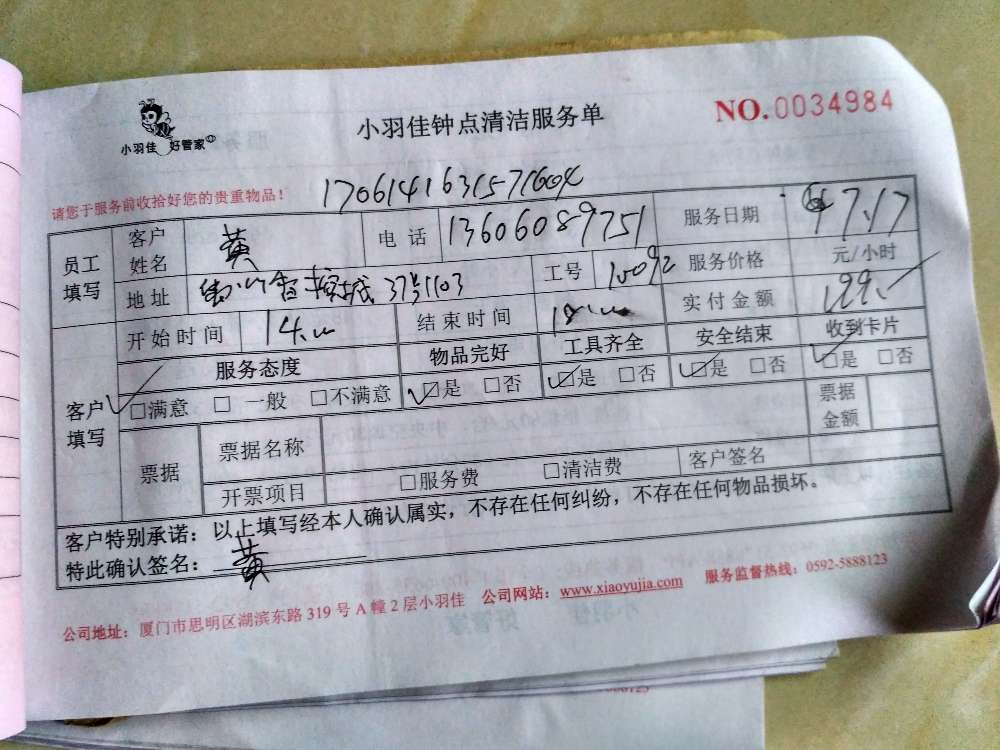 小羽佳 好管家
小羽佳钟点清洁服务单
NO.0034984
请您于服务前收拾好您的贵重物品！
员工填写 客户姓名 黄 电话 13606089751 服务日期 7.17
地址 37号1103 工号 服务价格 元/小时
开始时间 14 结束时间 实付金额 199
客户填写 服务态度 物品完好 工具齐全 安全结束 收到卡片
□满意 □一般 □不满意 □是 □否 □是 □否 □是 □否 □是 □否
票据 票据名称 票据金额
开票项目 □服务费 □清洁费 客户签名
客户特别承诺：以上填写经本人确认属实，不存在任何纠纷，不存在任何物品损坏。
特此确认签名：黄
公司地址：厦门市思明区湖滨东路319号A幢2层小羽佳 公司网站：www.xiaoyujia.com 服务监督热线：0592-5888123